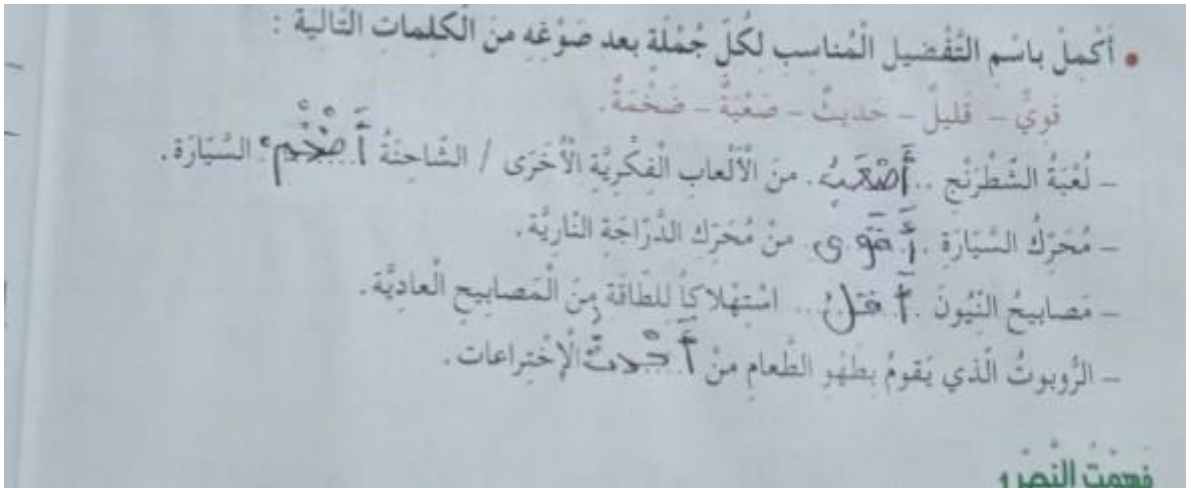 • أَكْمِلْ باسْمِ التَّفْضيل الْمُناسب لِكُلّ جُمْلَة بعد صَوْغِه منَ الْكَلِمات التَّاليَة :
قَوِيٌّ – قَليلٌ – حَديثٌ – صَعْبَةٌ – ضَخْمَةٌ.
– لُعْبَةُ الشَّطْرَنْجِ ..أَصْعَبُ. منَ الْأَلْعابِ الْفِكْرِيَّةِ الْأُخَرَى / الشَّاحِنَةُ أَضْخَم السَّيَارَة.
– مُحَرِّكُ السَّيَارَةِ .أَقْوَى. منْ مُحَرِّك الدَّرَّاجَةِ النَّارِيَّة.
– مَصابيحُ النِّيُونَ .أَقَلُّ... اسْتِهْلاكاً للطَّاقَة مِنَ الْمَصابيح الْعاديَّة.
– الرُّوبوتُ الَّذي يَقومُ بِطَهْوِ الطَّعامِ منْ أَحْدَث الْإخْتِراعات.
فَهِمْتُ النَّصَّ